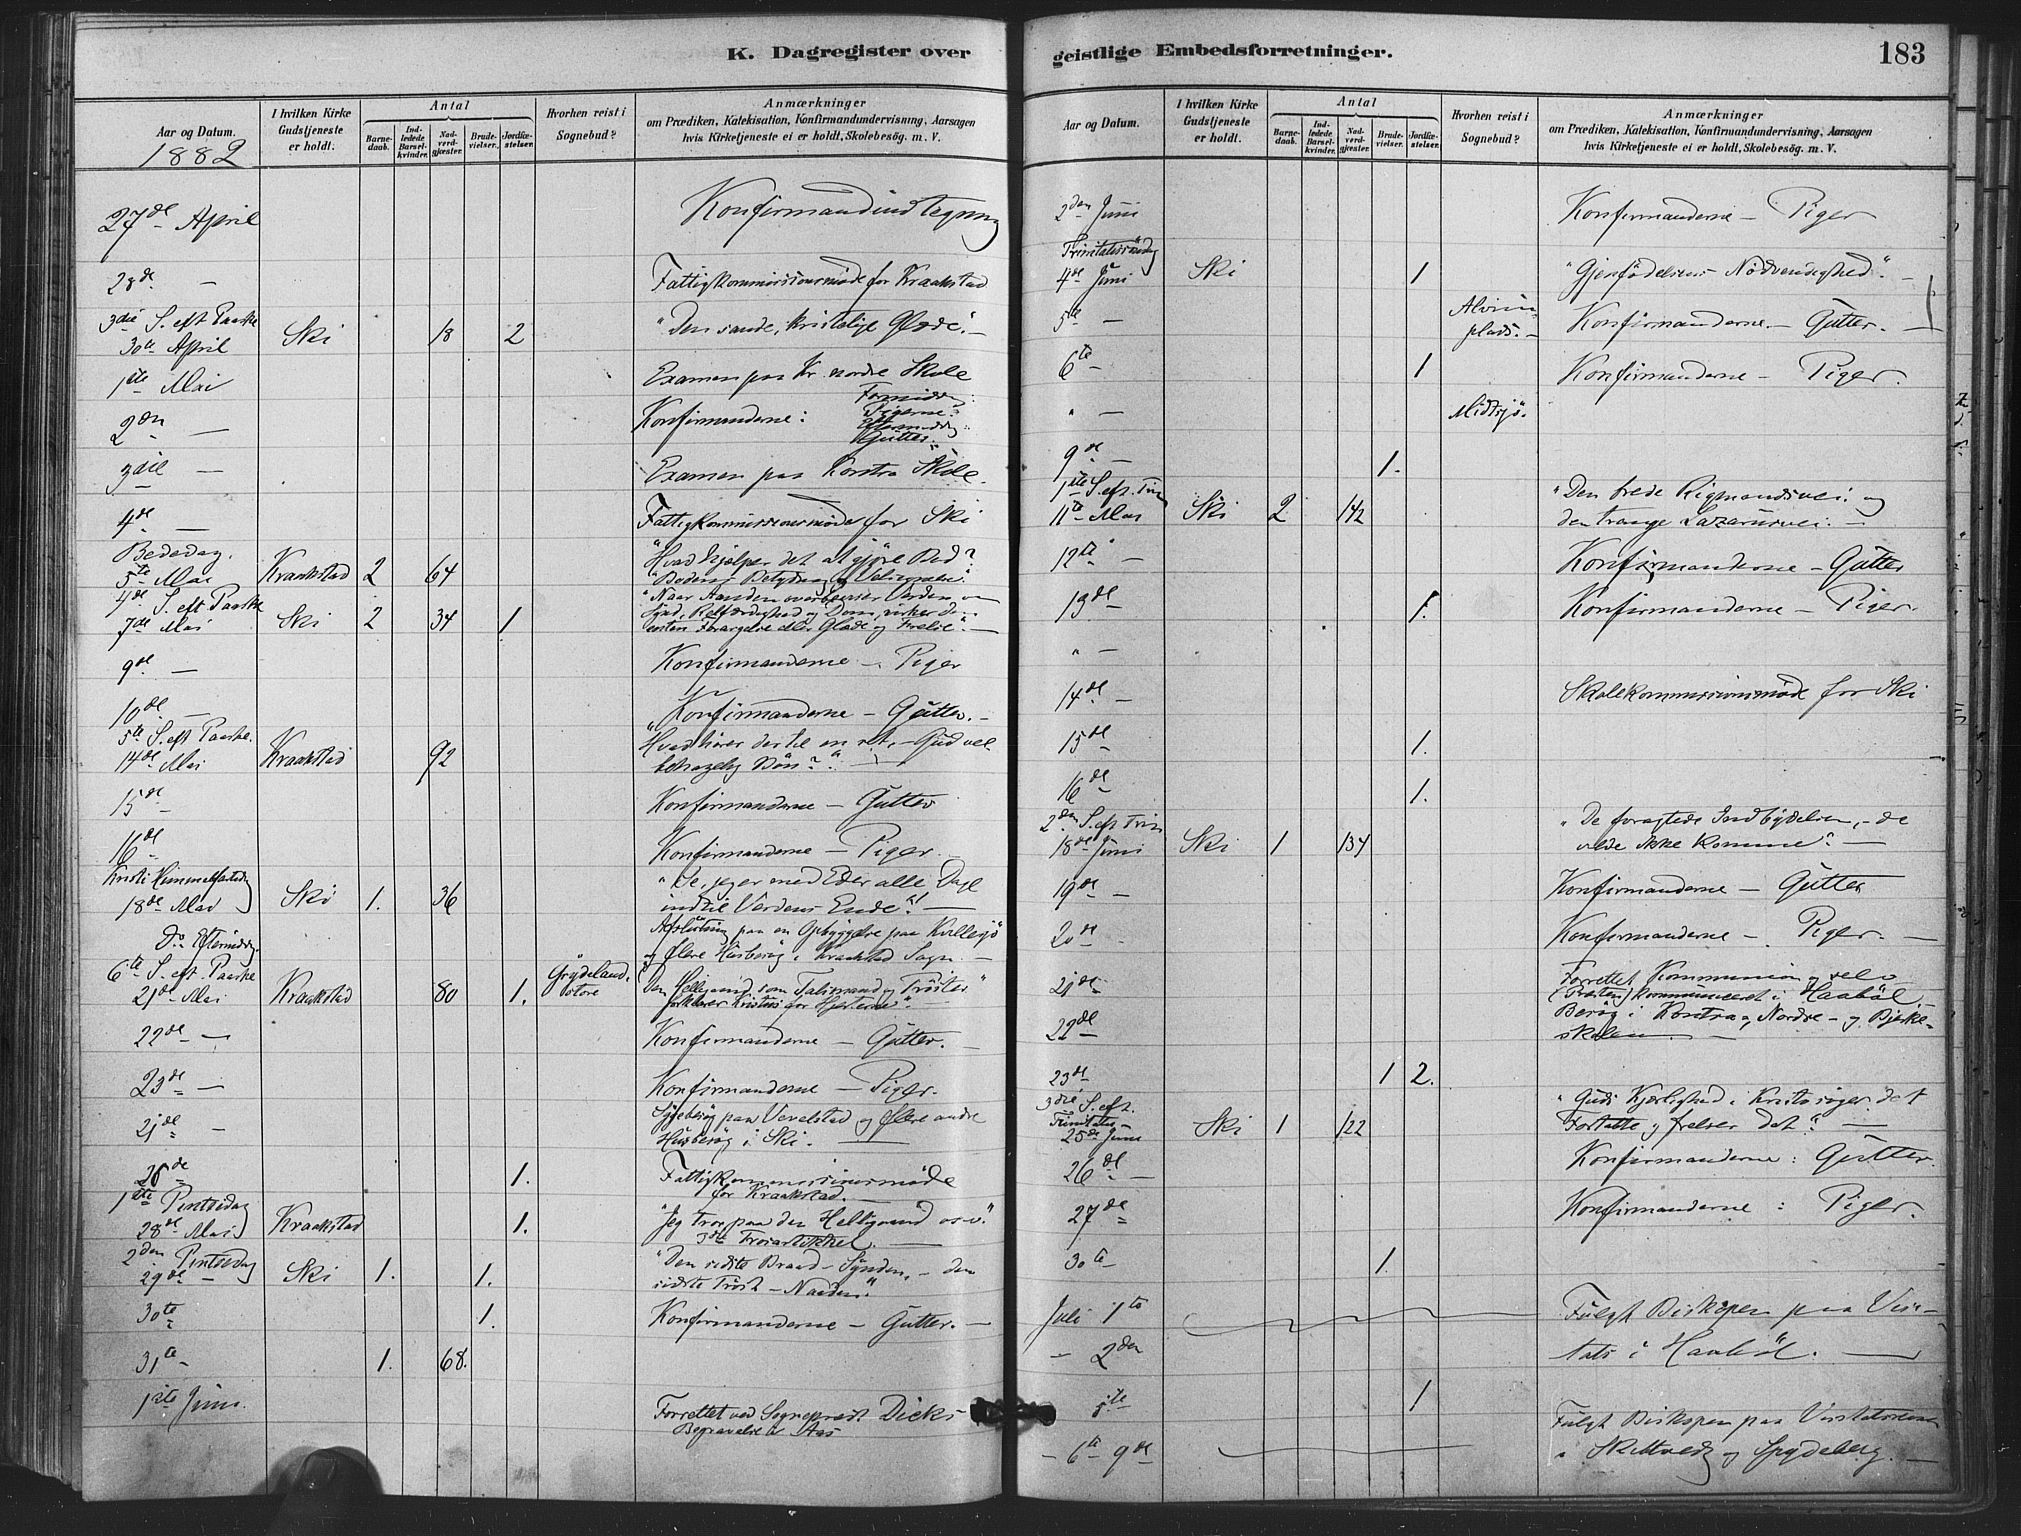 K. Dagregister over
Aar og Datum.
I hvilken Kirke Gudstjeneste er holdt.
Antal
Barnedaab.
Indledede Barselkvinder.
Nadverdgjæster.
Brudevielser.
Jordfæstelser.
Hvorhen reist i Sognebud?
Anmærkninger
om Prædiken, Katekisation, Konfirmandundervisning, Aarsagen
hvis Kirketjeneste ei er holdt, Skolebesög. m. V.
1882
27de April Konfirmandindtegning
28de — Fattigkommissionsmøde for Kraakstad
3die S. eft Paaske
30te April Ski 18 2 "Den sande, kristelige Glæde". —
1ste Mai Examen paa Kr. nordre Skole
2den — Konfirmanderne: Formiddag: Pigerne.
Eftermiddag: Gutter.
3die — Examen paa Kontra Skole.
4de — Fattigkommissionsmøde for Ski
Bededag.
5te Mai Kraakstad 2 64 "Hvad hjælper det at gjøre Bod?
"Bodens Betydning og Velsignelse."
4de S. eft Paaske "Naar Aanden overbeviser Verden om
7de Mai Ski 2 34 1 Synd, Retfærdighed og Dom, virker den
enten Forargelse eller Glæde og Frelse". —
9de — Konfirmanderne — Piger
10de — Konfirmanderne — Gutter. —
5te S. eft Paaske. "Hvad hører der til en ret, — Gud vel
14de Mai Kraakstad 92 behagelig Bøn?" —
15de — Konfirmanderne — Gutter
16de Konfirmanderne — Piger.
Kristi Himmelfartsdag "Se, jeg er med Eder alle Dage
18de Mai Ski 1. 36 indtil Verdens Ende"! —
Do Eftermiddag paa en Opbyggelse paa
og flere Husbesøg i Kraakstad Sogn. —
6te S. eft. Paaske Grydeland, store
21de Mai Kraakstad 80 1. Den Helligaand som Talsmand og Trøster
forklarer Kristus for Hjerterne". —
22de — Konfirmanderne — Gutter. —
23de — Konfirmanderne — Piger.
Sygebesøg paa Vevelstad og flere andre
Husbesøg i Ski. —
26de 1. Fattigkommissionsmøde
for Kraakstad. —
1ste Pintsedag
28de Mai Kraakstad 1. "Jeg tror paa den Helligaand osv."
3die Trosartikkel. —
2den Pintsedag "Den sidste Braad — Synden, — den
29de — Ski 1. 1. sidste Trøst — Naaden."
30te 1. Konfirmanderne — Gutter. —
31te — 1. 68.
1ste Juni. Forrettet ved Sogneprest Dicks
Begravelse i Aas
geistlige Embedsforretninger.
183
Aar og Datum.
I hvilken Kirke Gudstjeneste er holdt.
Antal
Barnedaab.
Indledede Barselkvinder.
Nadverdgjæster.
Brudevielser.
Jordfæstelser.
Hvorhen reist i Sognebud?
Anmærkninger
om Prædiken, Katekisation, Konfirmandundervisning, Aarsagen
hvis Kirketjeneste ei er holdt, Skolebesög. m. V.
2den Juni Konfirmanderne — Piger
Trinitatissøndag
4de Juni Ski 1 "Gjenfødelsens Nødvendighed". —
5te — Konfirmanderne. — Gutter. —
6te — 1 Konfirmanderne — Piger.
" — Midtsjø.
9de — 1.
1ste S. eft. Trin "Den brede Rigmandsvei og
11te Mai Ski 2 142 den trange Lazarusvei. —
12te — Konfirmanderne — Gutter
13de 1. Konfirmanderne — Piger.
" —
14de — Skolekommissionsmøde for Ski
15de 1.
16de 1.
2den S. eft Trin "De foragtede Indbydelsen, — de
18de Juni Ski 1 134 vilde ikke komme". —
19de — Konfirmanderne — Gutter
20de — Konfirmanderne — Piger. —
21de Forrettet Kommunion og selv
(Presten) kommuniceret i Haabøl. —
22de Besøg i Kontra, Nordre — og Bjerke-
skolen. —
23de 1 2.
3die S. eft. Trinitatis "Guds Kjærlighed i Kristo søger det
25de Juni Ski 1 122 Fortabte og frelser det". —
26de — Konfirmanderne: Gutter.
27de Konfirmanderne: Piger.
30te 1.
Juli 1te Fulgt Biskopen paa Visi-
— 2den tats i Haabøl. —
1
Fulgt Biskopen paa Visitatsen
— 6te 9de i Skiptvedt og Spydeberg. —